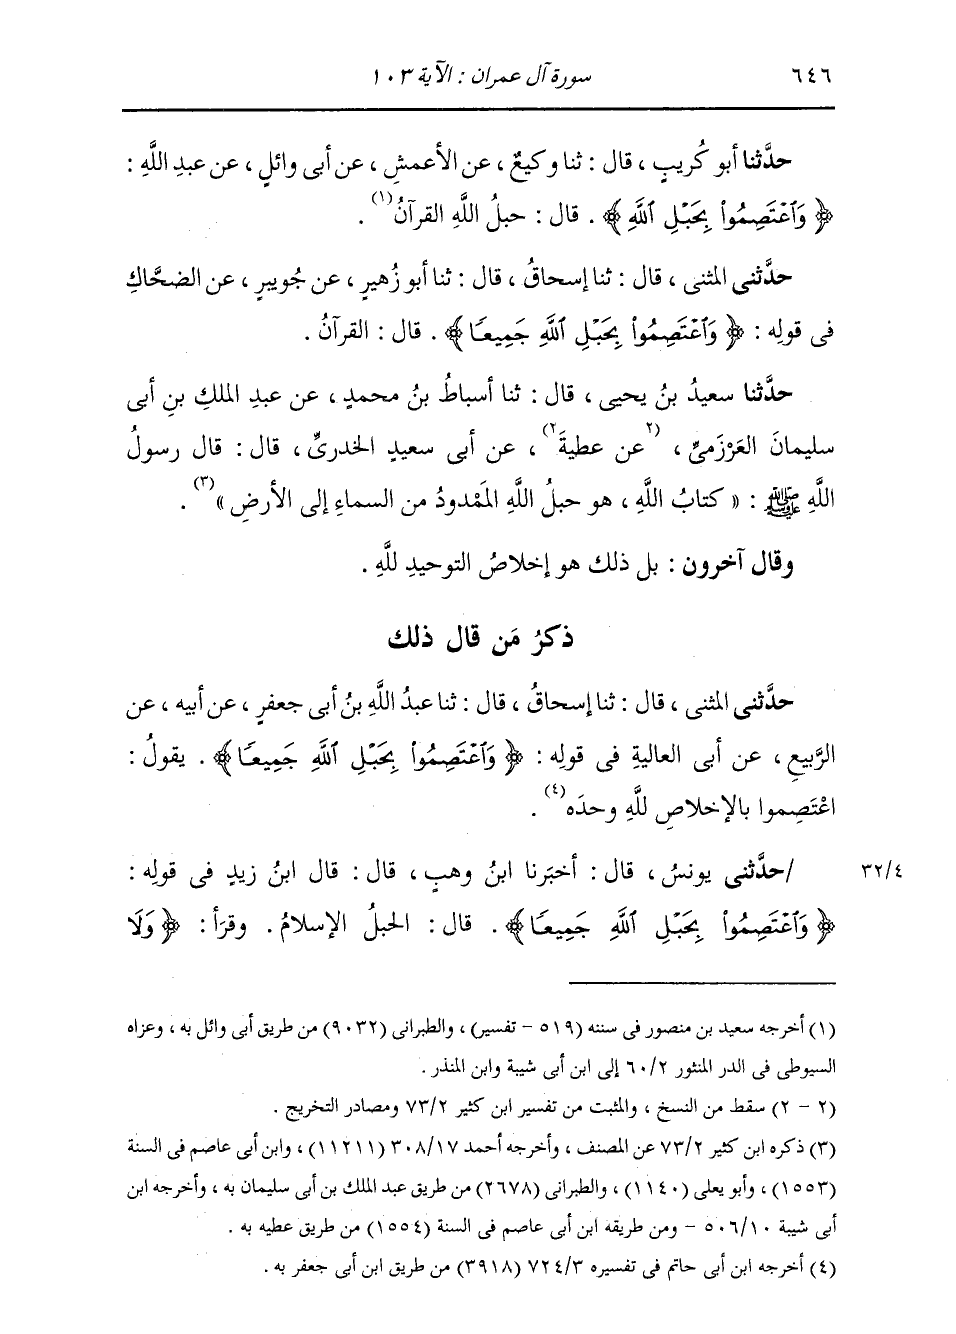 ٦٤٦ سورة آل عمران : الآية ١٠٣
حدَّثنا أبو كُريبٍ ، قال : ثنا وكيعٌ ، عن الأعمشِ ، عن أبى وائلٍ ، عن عبدِ اللَّهِ :
﴿ وَٱعْتَصِمُوا۟ بِحَبْلِ ٱللَّهِ ﴾ . قال : حبلُ اللَّهِ القرآنُ(١) .
حدَّثنى المثنى ، قال : ثنا إسحاقُ ، قال : ثنا أبو زُهيرٍ ، عن جُويبرٍ ، عن الضحَّاكِ
فى قولِه : ﴿ وَٱعْتَصِمُوا۟ بِحَبْلِ ٱللَّهِ جَمِيعًا ﴾ . قال : القرآنُ .
حدَّثنا سعيدُ بنُ يحيى ، قال : ثنا أسباطُ بنُ محمدٍ ، عن عبدِ الملكِ بنِ أبى
سليمانَ العَرْزَمىِّ ، (٢عن عطيةَ٢) ، عن أبى سعيدٍ الخدرىِّ ، قال : قال رسولُ
اللَّهِ ﷺ : « كتابُ اللَّهِ ، هو حبلُ اللَّهِ المَمْدودُ من السماءِ إلى الأرضِ »(٣) .
وقال آخرون : بل ذلك هو إخلاصُ التوحيدِ للَّهِ .
ذكرُ مَن قال ذلك
حدَّثنى المثنى ، قال : ثنا إسحاقُ ، قال : ثنا عبدُ اللَّهِ بنُ أبى جعفرٍ ، عن أبيه ، عن
الرَّبيعِ ، عن أبى العاليةِ فى قولِه : ﴿ وَٱعْتَصِمُوا۟ بِحَبْلِ ٱللَّهِ جَمِيعًا ﴾ . يقولُ :
اعْتَصِموا بالإخلاصِ للَّهِ وحدَه(٤) .
٣٢/٤ /حدَّثنى يونسُ ، قال : أخبَرنا ابنُ وهبٍ ، قال : قال ابنُ زيدٍ فى قولِه :
﴿ وَٱعْتَصِمُوا۟ بِحَبْلِ ٱللَّهِ جَمِيعًا ﴾ . قال : الحبلُ الإسلامُ . وقرَأ : ﴿ وَلَا
(١) أخرجه سعيد بن منصور فى سننه (٥١٩ - تفسير) ، والطبرانى (٩٠٣٢) من طريق أبى وائل به ، وعزاه
السيوطى فى الدر المنثور ٦٠/٢ إلى ابن أبى شيبة وابن المنذر .
(٢ - ٢) سقط من النسخ ، والمثبت من تفسير ابن كثير ٧٣/٢ ومصادر التخريج .
(٣) ذكره ابن كثير ٧٣/٢ عن المصنف ، وأخرجه أحمد ٣٠٨/١٧ (١١٢١١) ، وابن أبى عاصم فى السنة
(١٥٥٣) ، وأبو يعلى (١١٤٠) ، والطبرانى (٢٦٧٨) من طريق عبد الملك بن أبى سليمان به ، وأخرجه ابن
أبى شيبة ٥٠٦/١٠ - ومن طريقه ابن أبى عاصم فى السنة (١٥٥٤) من طريق عطيه به .
(٤) أخرجه ابن أبى حاتم فى تفسيره ٧٢٤/٣ (٣٩١٨) من طريق ابن أبى جعفر به .